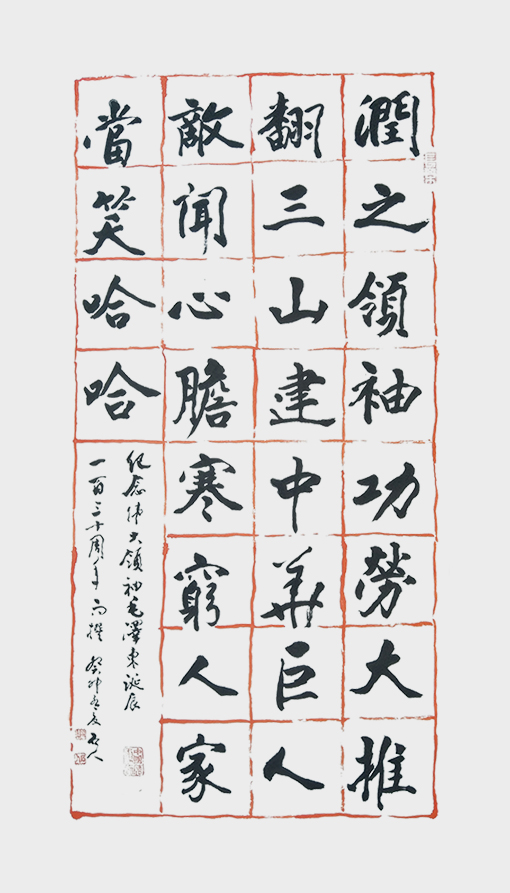 潤之領袖功勞大推
翻三山建中華巨人
敵聞心膽寒窮人家
當笑哈哈
紀念偉大領袖毛澤東誕辰
一百三十周年 而撰 癸卯